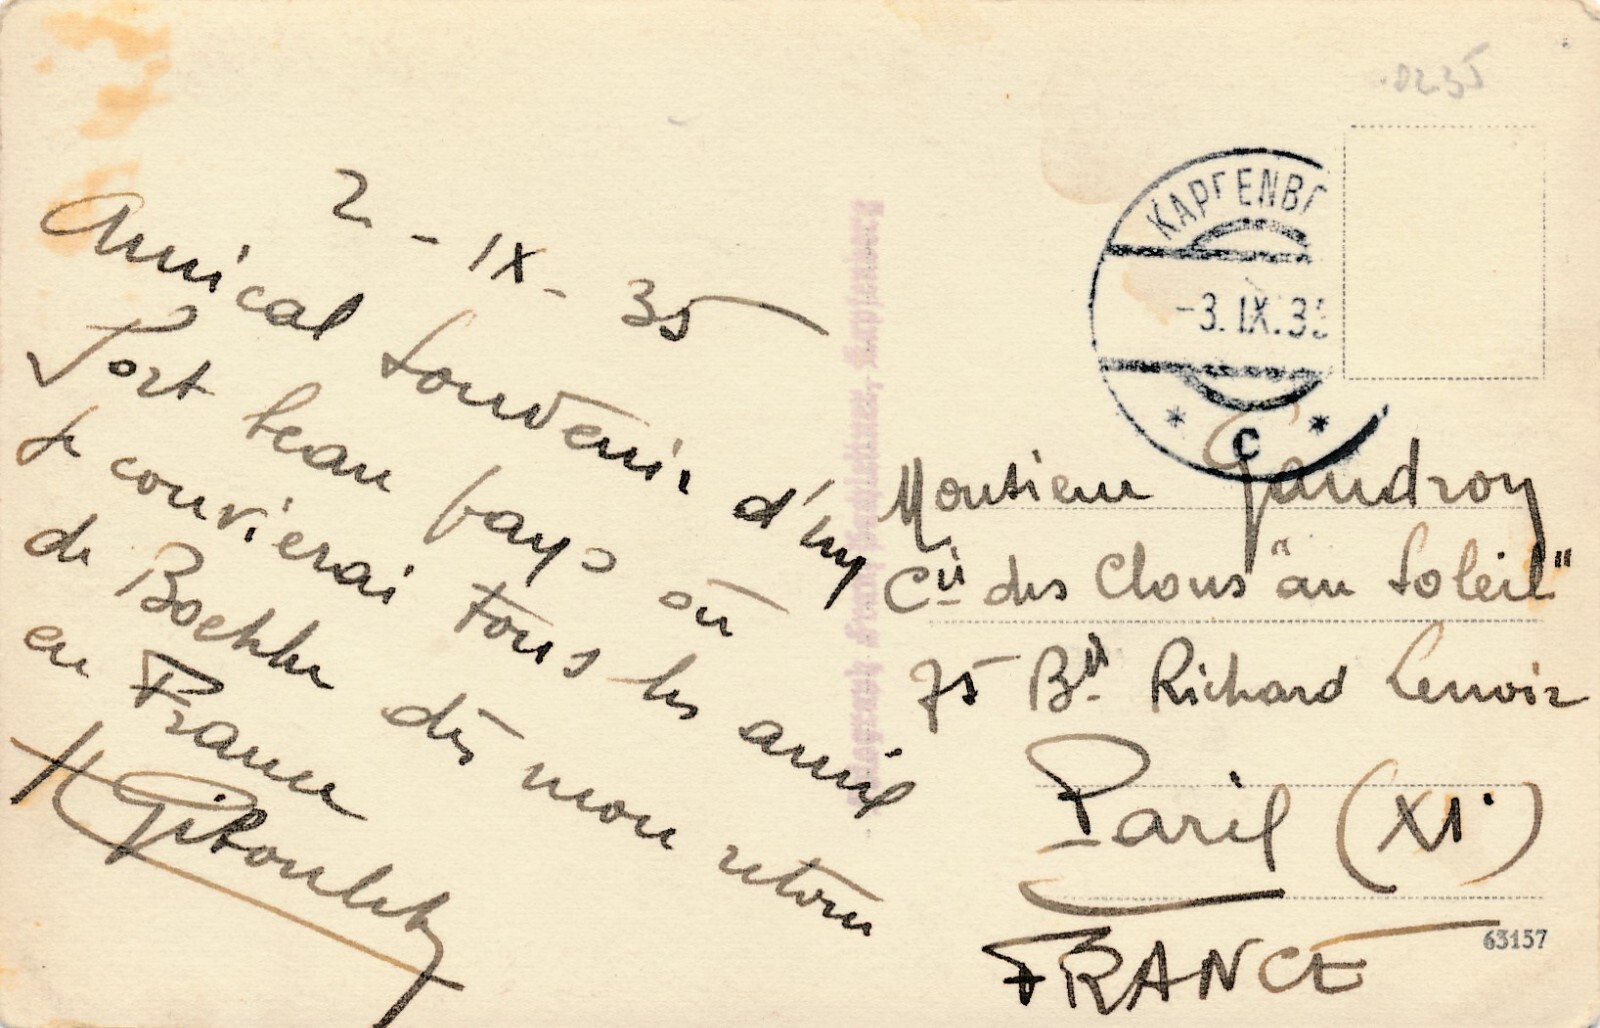 2-IX-35
Amical souvenir d'un
fort beau pays où
je convierai tous les amis
de Boehler dès mon retour
en France
0235
KAPFENBE
-3.IX.35
* C *
Monsieur Gaudron
Cie des Clous "au Soleil"
75 Bd Richard Lenoir
Paris (XIe)
FRANCE
63157